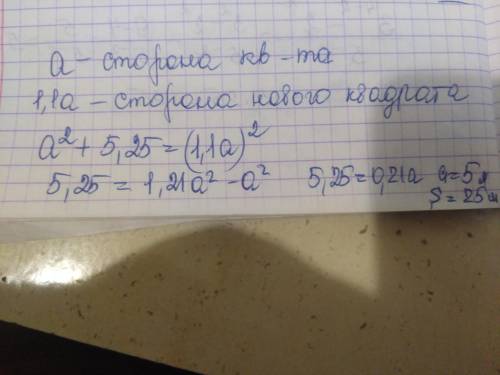 a – сторона кв-та
1,1a – сторона нового квадрата
a² + 5,25 = (1,1a)²
5,25 = 1,21a² – a² 5,25 = 0,21a a = 5
S = 25